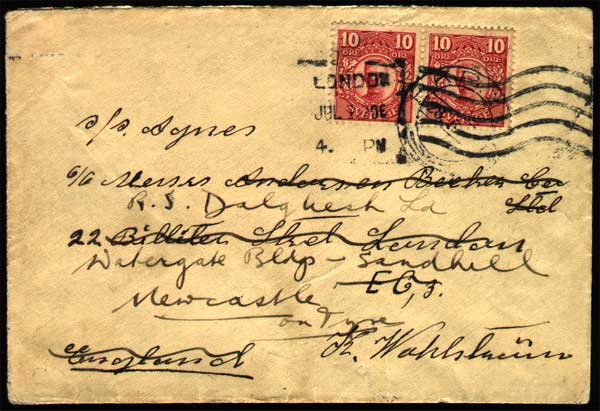 10 10 10 10
ÖRE ÖRE ÖRE ÖRE
SVERIGE SVERIGE
LONDON
JUL
4. PM
s/s. Agnes
c/o Messrs Andersen Becker Co
Ltd
R. S. Dalgliesh Ld
22 Billiter Street London
Watergate Bldgs - Sandhill
E C, 3.
Newcastle
on Tyne
England K. Wahlström